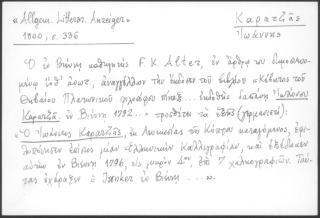 «Allgem. Litterar. Anzeiger»
1800, σ. 336
Καρατζᾶς
Ἰωάννης
Ὁ ἐν Βιέννῃ καθηγητὴς F. K. Alter, ἐν ἄρθρῳ του δημοσιευ-
ἀναγγέλλων τὴν ἔκδοσιν τοῦ βιβλίου «Κέβητος τοῦ
Θηβαίου Πλατωνικοῦ φιλοσόφου πίναξ... ἐκδοθεὶς δαπάνῃ Ἰωάννου
Καρατζᾶ ἐν Βιέννῃ 1792...» προσθέτει τὰ ἑξῆς (γερμανιστί):
«Ὁ Ἰωάννης Καρατζᾶς, ἐκ Λευκωσίας τῆς Κύπρου καταγόμενος, ἐφι-
λοπόνησεν ἐπίσης μίαν Ἑλληνικὴν Καλλιγραφίαν, καὶ ἐξέδωκεν
αὐτὴν ἐν Βιέννῃ 1796, εἰς μικρὸν 4ον, ἐπὶ 7 χαλκογραφιῶν. Ταύ-
τας ἐχάραξεν ὁ Junker ἐν Βιέννῃ ... ».